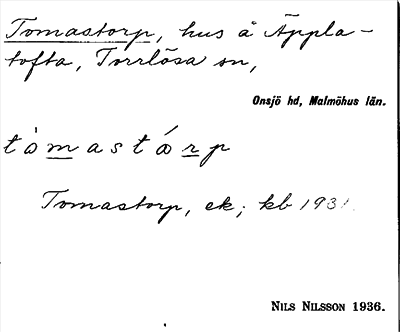 Tomastorp, hus å Äppla-
tofta, Torrlösa sn,
Onsjö hd, Malmöhus län.
Tomastorp, ek; kb 1931.
NILS NILSSON 1936.